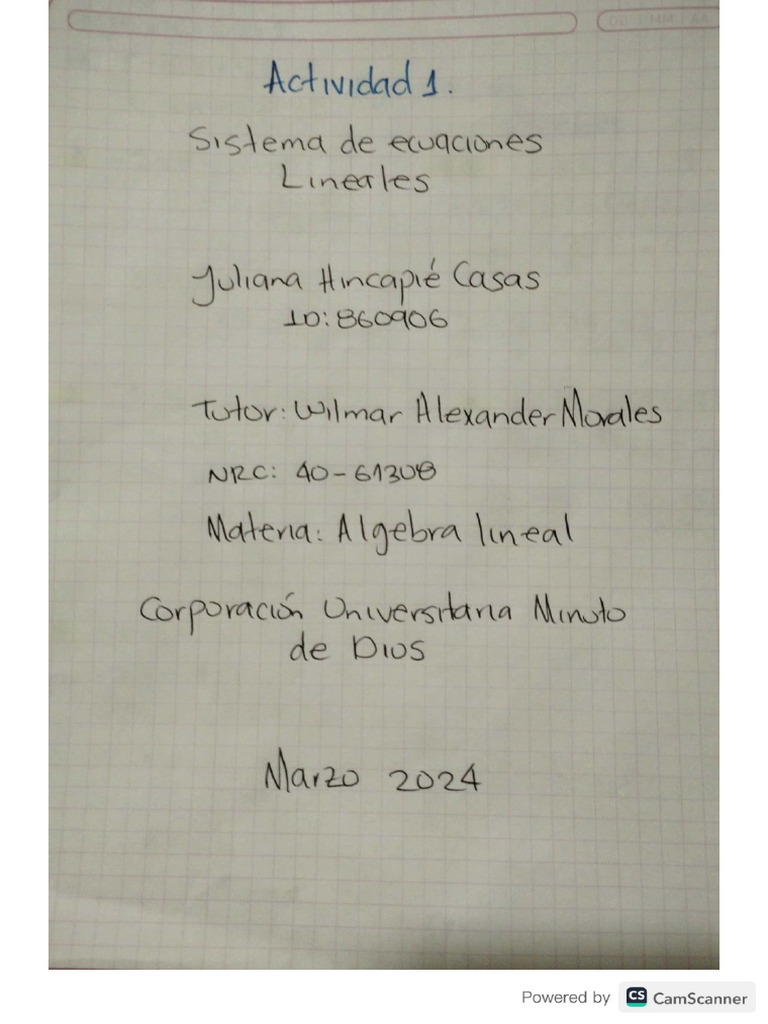 DD MM AA
Actividad 1.
Sistema de ecuaciones
Lineales
Juliana Hincapié Casas
ID: 860906
Tutor: Wilmar Alexander Morales
NRC: 40-61308
Materia: Algebra lineal
Corporación Universitaria Minuto
de Dios
Marzo 2024
Powered by CS CamScanner